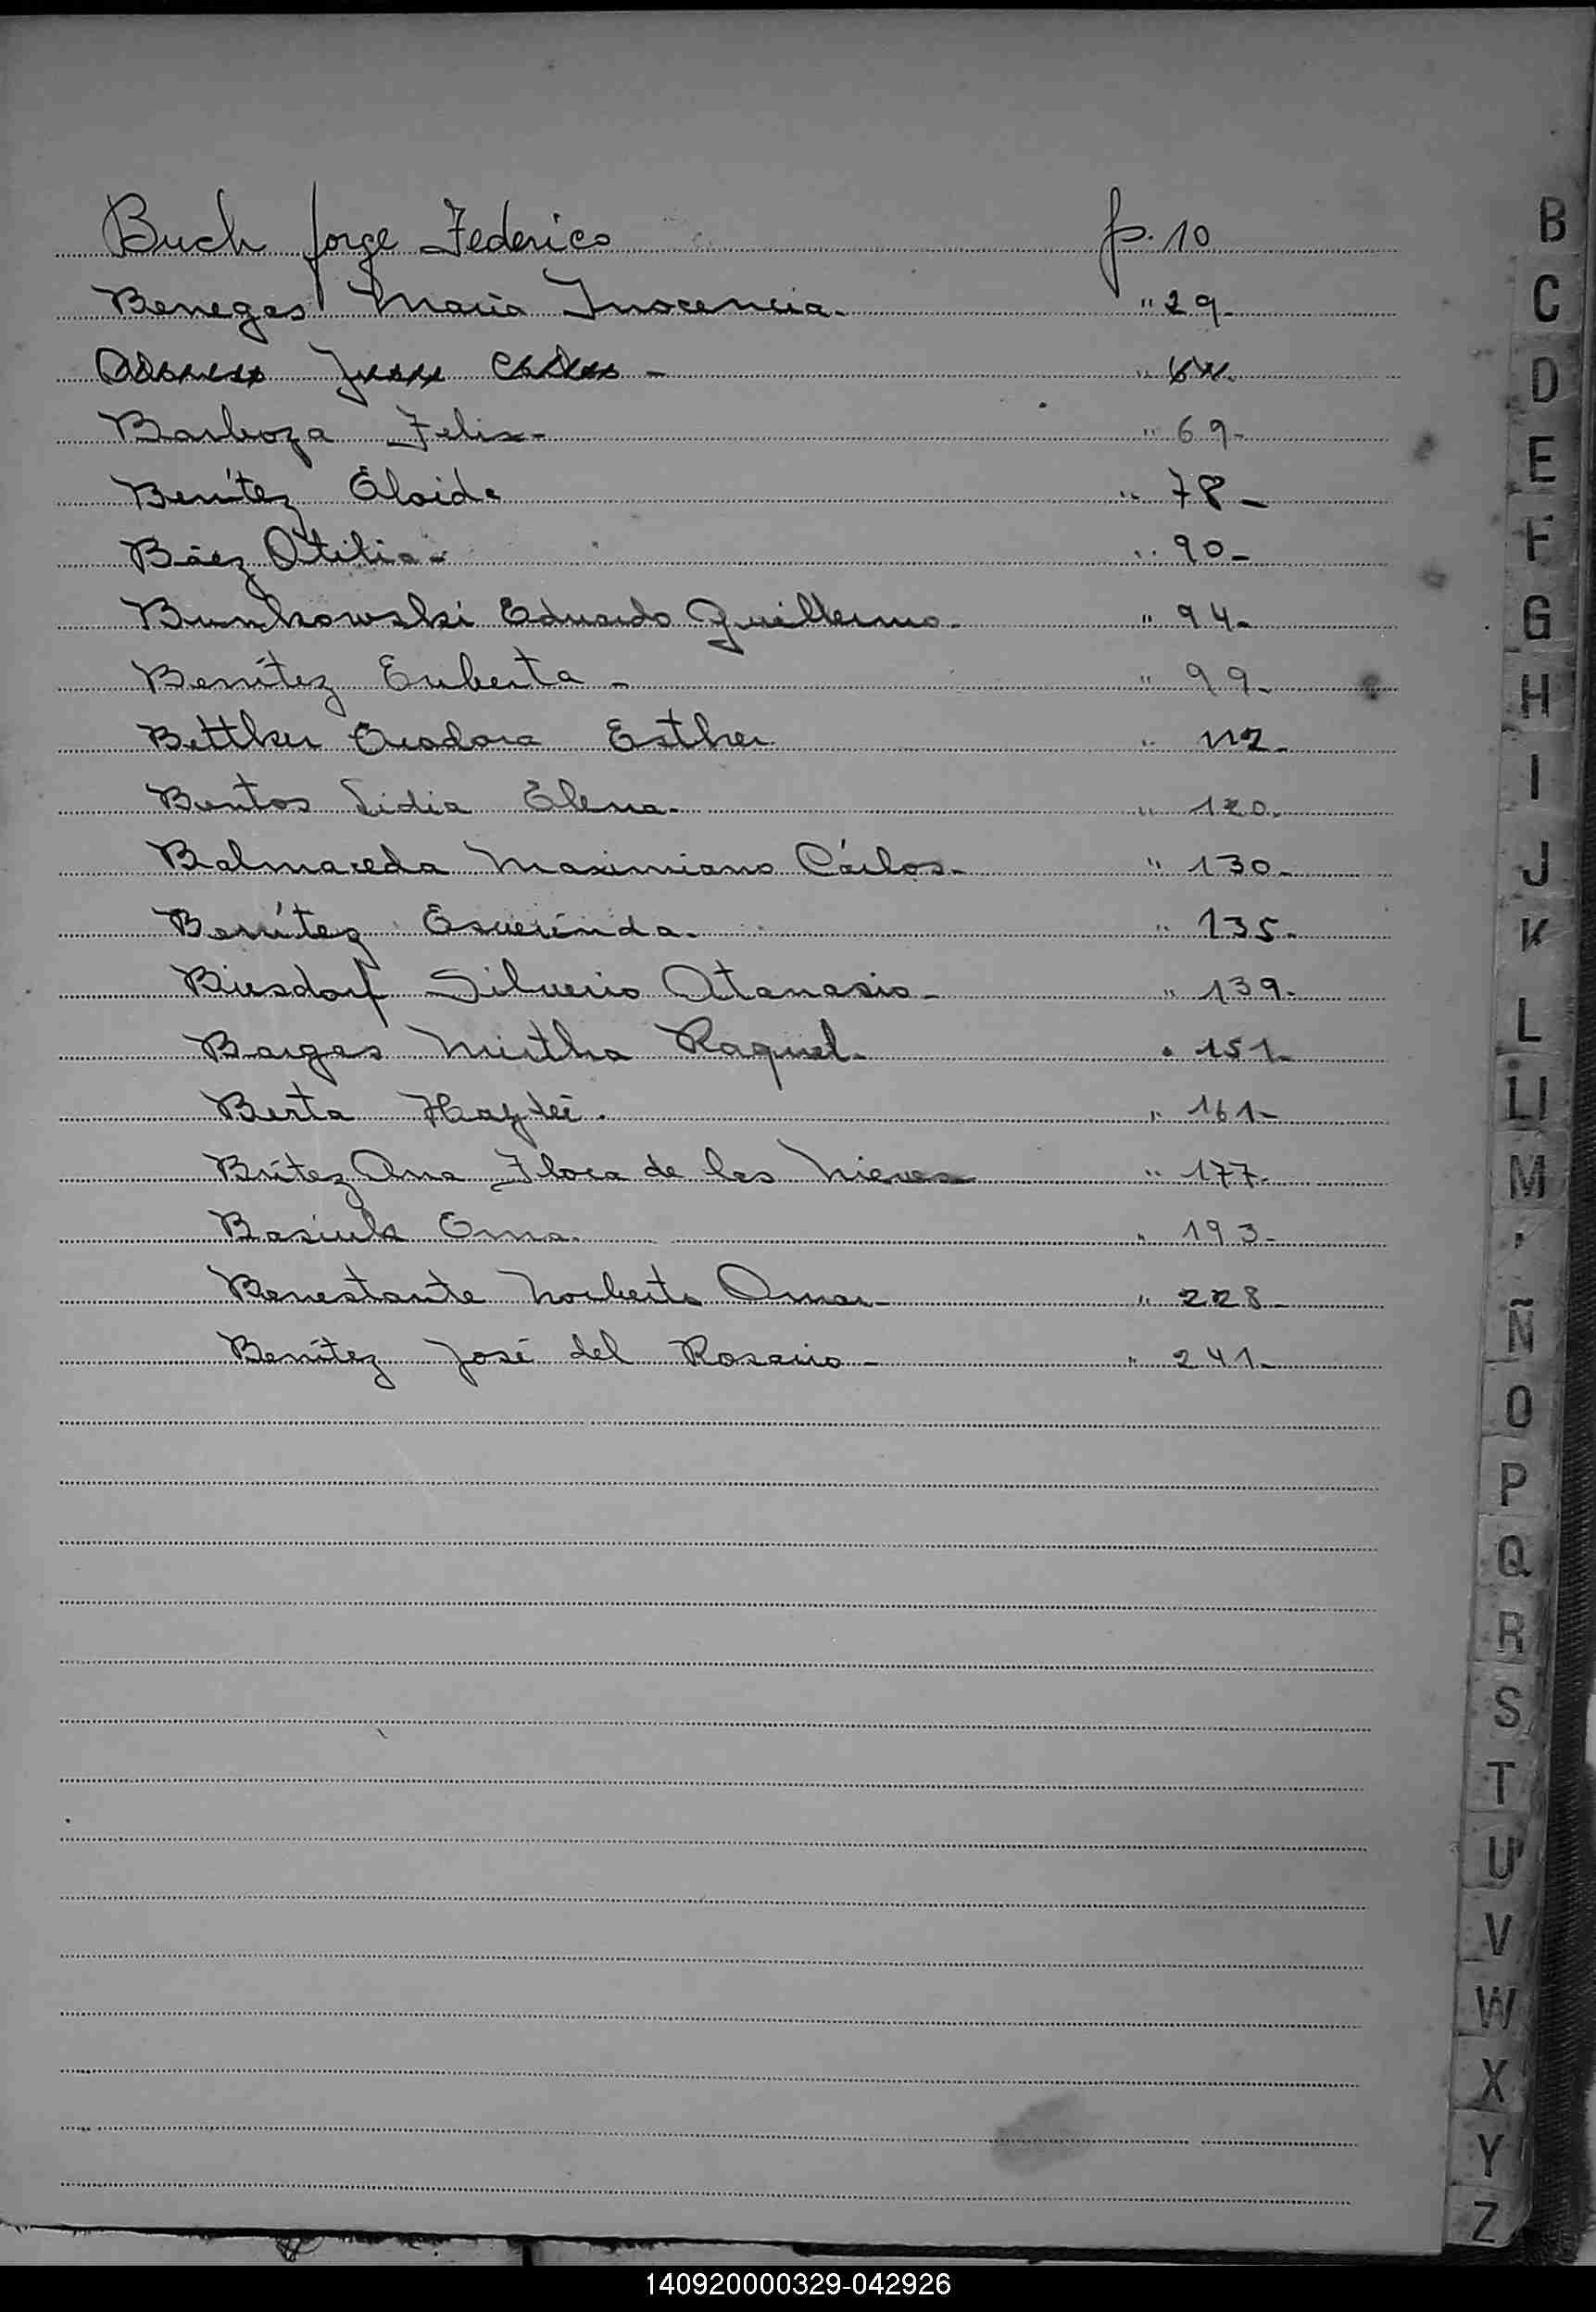 Buch Jorge Federico fs. 10
Benegas María Inocencia. " 29-
Juan Carlos - "
Barboza Felix- " 69-
Benítez Eloida " 78-
Báez Otilia- " 90-
Bunkowski Eduardo Guillermo- " 94-
Benítez Euberta - " 99-
Bettker Esther " 112-
Bentos Lidia Elena- " 120-
Balmaceda Maximiano Cárlos- " 130-
Benítez " 135-
Biesdorf Silverio Atanasio- " 139-
Bargas Mirtha Raquel- " 151-
Berta Haydeé. " 161-
Brítez Ana Flora de las Nieves " 177-
Basiuk Ema. " 193-
Benestante Norberto Omar- " 228-
Benítez José del Rosario- " 241-
B
C
D
E
F
G
H
I
J
K
L
Ll
M
N
Ñ
O
P
Q
R
S
T
U
V
W
X
Y
Z
140920000329-042926